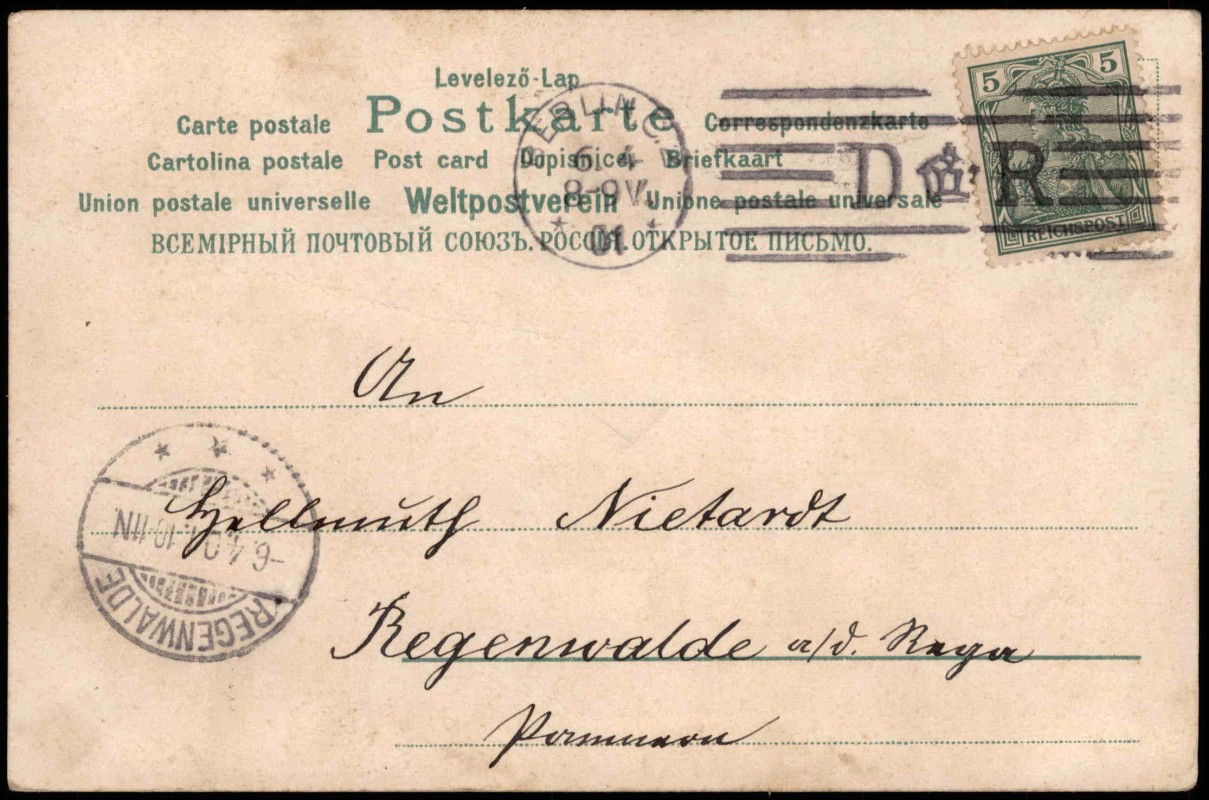 Levelező-Lap
Carte postale Postkarte Correspondenzkarte
Cartolina postale Post card Dopisnice, Briefkaart
Union postale universelle Weltpostverein Unione postale universale
ВСЕМІРНЫЙ ПОЧТОВЫЙ СОЮЗЪ. РОССІЯ. ОТКРЫТОЕ ПИСЬМО.
BERLIN C.2
6. 4
8-9V.
01.
D R
5 5
REICHSPOST
An
Hellmuth Nietardt
Regenwalde a/d. Rega
Pommern
-6.4.01. 10-11N
REGENWALDE